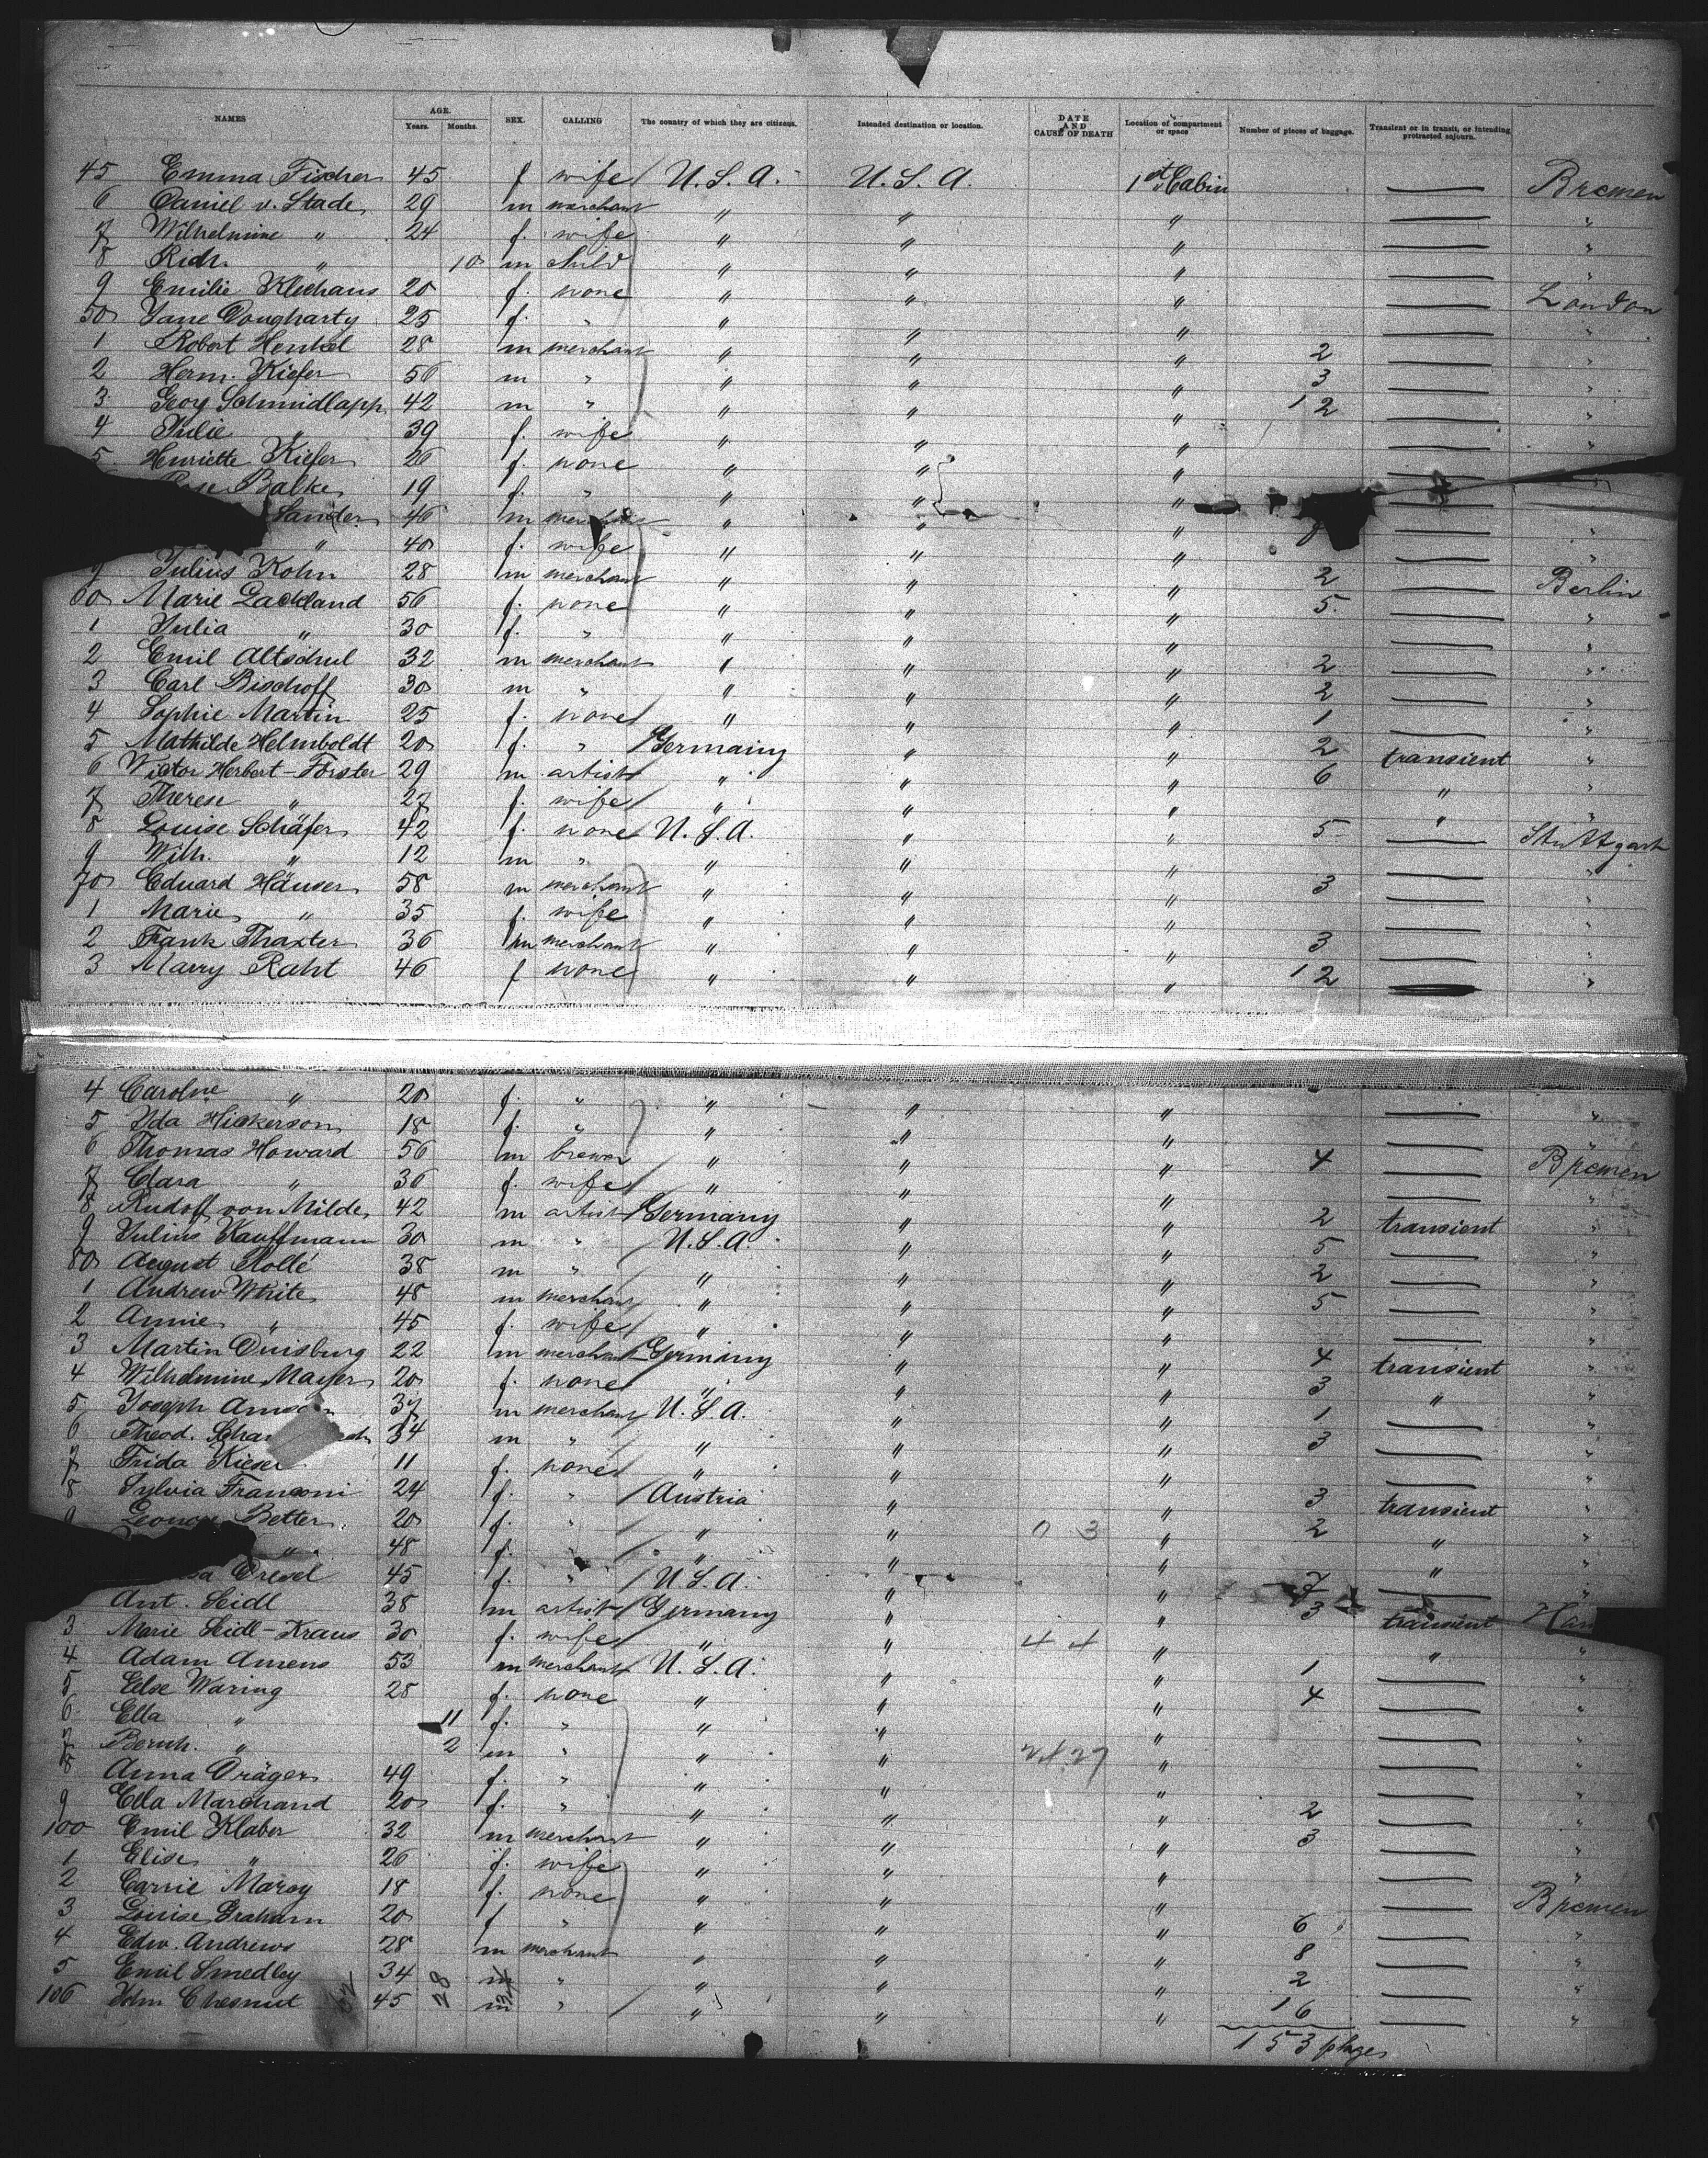 NAMES AGE. Years. Months. SEX. CALLING The country of which they are citizens. Intended destination or location. DATE AND CAUSE OF DEATH Location of compartment or space Number of pieces of baggage. Transient or in transit, or intending protracted sojourn.
45 Emma Fischer 45 f wife U.S.A. U.S.A. 1st Cabin — Bremen
6 Daniel v. Stade 29 m merchant " " " — "
7 Wilhelmine " 24 f. wife " " " — "
8 Rich. " 10 m child " " " — "
9 Emilie Klechaus 20 f. none " " " — London
50 Jane Dougharty 25 f. " " " " — "
1 Robert Henkel 28 m merchant " " " 2 — "
2 Herm. Kiefer 56 m " " " " 3 — "
3 Georg Schmidlapp 42 m " " " " 12 — "
4 Julie " 39 f. wife " " " — "
5 Henriette Kiefer 26 f. none " " " —
Balke 19 f. " " " " —
Sander 46 m " " " — "
" 40 f. wife " " " — "
9 Julius Kohn 28 m merchant " " " 2 — Berlin
60 Marie Lackland 56 f. none " " " 5. — "
1 Julia " 30 f. " " " " — "
2 Emil Altschul 32 m merchant " " " 2 — "
3 Carl Bischoff 30 m " " " " 2 — "
4 Sophie Martin 25 f. none " " " 1 — "
5 Mathilde Helmboldt 20 f. " Germany " " 2 transient "
6 Victor Herbert-Förster 29 m. artist " " " 6 " "
7 Therese " 27 f. wife " " " " "
8 Louise Schäfer 42 f. none U.S.A. " " 5 — Stuttgart
9 Wilh. " 12 m " " " " — "
70 Eduard Häuser 58 m merchant " " " 3 — "
1 Marie " 35 f. wife " " " — "
2 Frank Thaxter 36 m merchant " " " 3 — "
3 Marry Raht 46 f none " " " 12 — "
4 Caroline " 20 f. " " " " — "
5 Ida Hickerson 18 f. " " " " — "
6 Thomas Howard 56 m brewer " " " 4 — Bremen
7 Clara " 36 f. wife " " " — "
8 Rudolf von Milde 42 m artist Germany " " 2 transient "
9 Julius Kauffmann 30 m " U.S.A. " " 5 — "
80 August Nollé 38 m " " " " 2 — "
1 Andrew White 48 m merchant " " " 5 — "
2 Annie " 45 f. wife " " " — "
3 Martin Duisburg 22 m merchant Germany " " 4 transient "
4 Wilhelmine Mayer 20 f. none " " " 3 " "
5 Joseph 37 m merchant U.S.A. " " 1 — "
6 Theod. 34 m " " " " 3 — "
7 Frida Kieser 11 f. none " " " — "
8 Sylvia Franconi 24 f. " Austria " " 3 transient "
9 Leonore Better 20 f. " " " 0 3 " 2 " "
" 48 f. " " " " " "
Drexel 45 f. " U.S.A. " " 7 — "
Ant. Seidl 38 m artist Germany " " 3 transient Han
3 Marie Seidl-Kraus 30 f. wife " " 4 4 " " "
4 Adam Amend 53 m merchant U.S.A. " " 1 — "
5 Else Waring 28 f. none " " " 4 — "
6 Ella " 11 f. " " " " — "
7 Bernh. " 2 m " " " 2 4. 27 " — "
8 Anna Dräger 49 f. " " " " — "
9 Ella Marchand 20 f. " " " " 2 — "
100 Emil Klaber 32 m merchant " " " 3 — "
1 Elise " 26 f. wife " " " — "
2 Carrie Marcy 18 f. none " " " — Bremen
3 Louise Graham 20 f " " " " 6 — "
4 Edw. Andrews 28 m merchant " " " 8 — "
5 Emil Smedley 34 m " " " " 2 — "
106 John Chesnut 45 m " " " " 16 — "
153 pkges